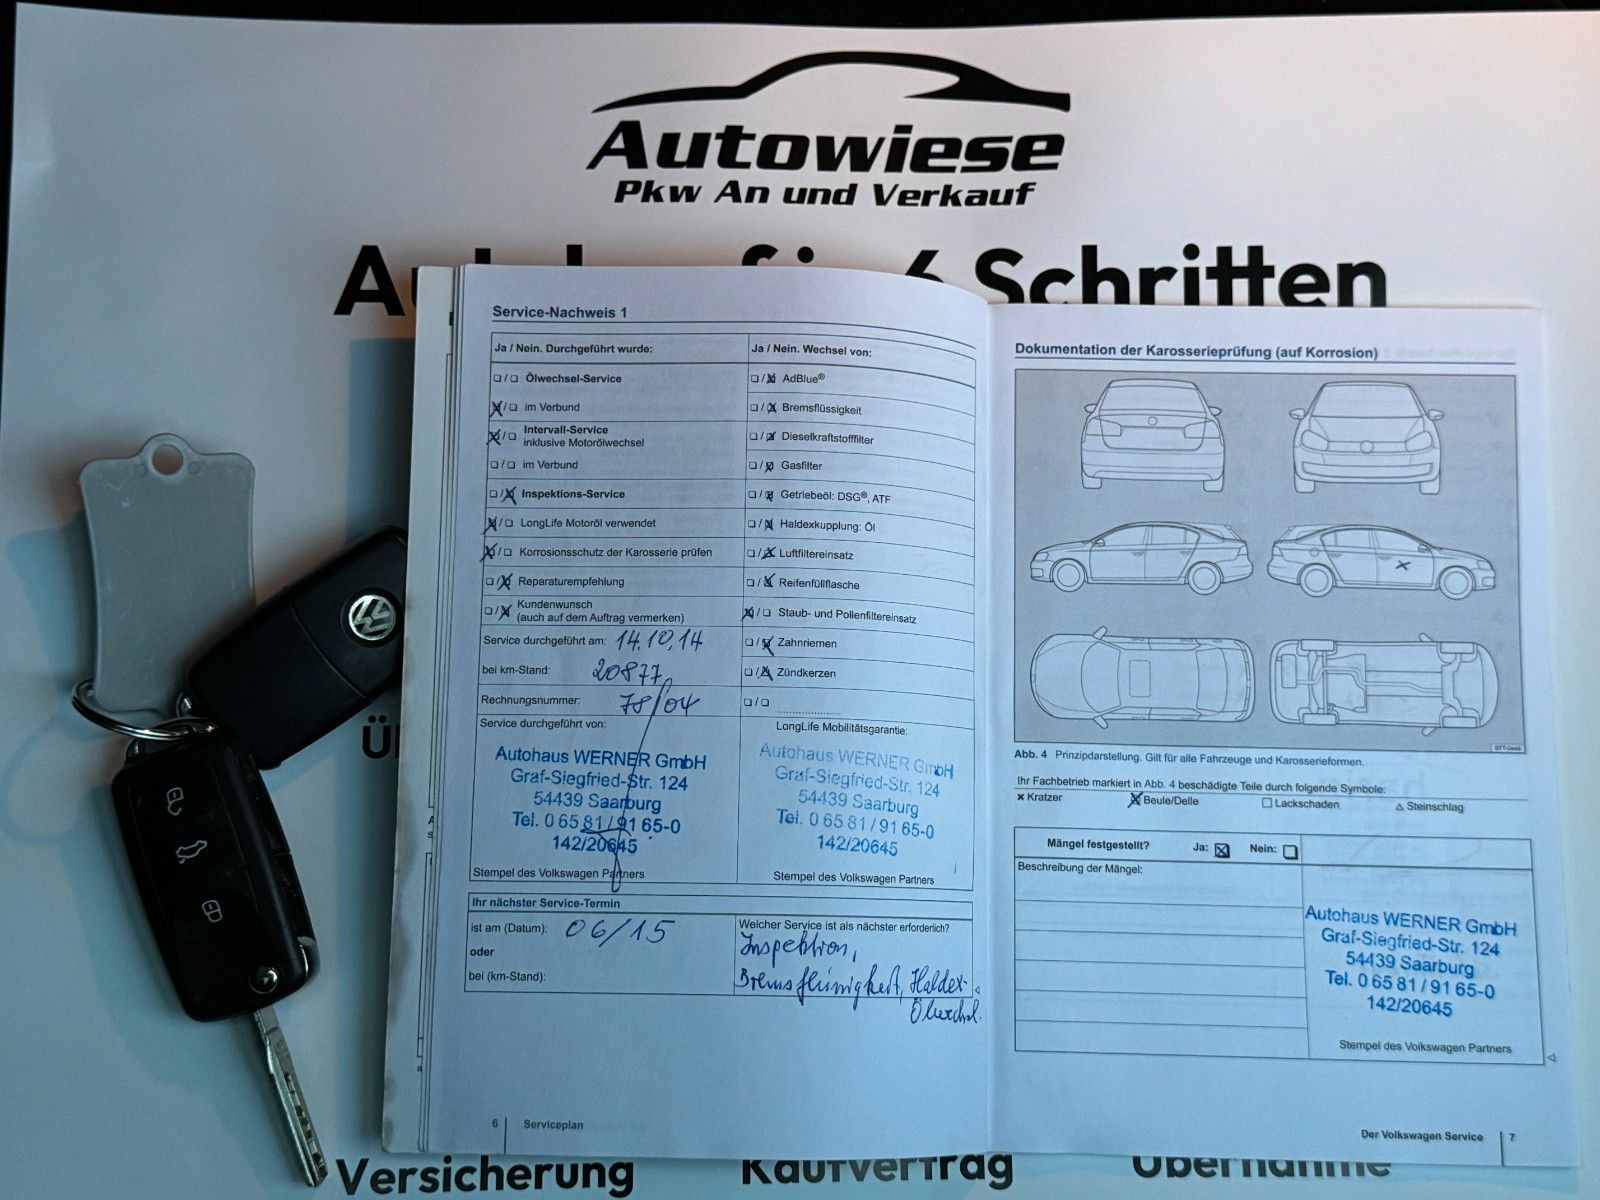 Autowiese
Pkw An und Verkauf
6 Schritten
Service-Nachweis 1
Ja / Nein. Durchgeführt wurde:
❑/❑ Ölwechsel-Service
☒/❑ im Verbund
☒/❑ Intervall-Service
inklusive Motorölwechsel
❑/❑ im Verbund
❑/☒ Inspektions-Service
☒/❑ LongLife Motoröl verwendet
☒/❑ Korrosionsschutz der Karosserie prüfen
❑/☒ Reparaturempfehlung
❑/☒ Kundenwunsch
(auch auf dem Auftrag vermerken)
Service durchgeführt am: 14.10.14
bei km-Stand: 20877
Rechnungsnummer: 78/04
Service durchgeführt von:
Autohaus WERNER GmbH
Graf-Siegfried-Str. 124
54439 Saarburg
Tel. 0 65 81 / 91 65-0
142/20645
Stempel des Volkswagen Partners
Ja / Nein. Wechsel von:
❑/☒ AdBlue®
❑/☒ Bremsflüssigkeit
❑/☒ Dieselkraftstofffilter
❑/☒ Gasfilter
❑/☒ Getriebeöl: DSG®, ATF
❑/☒ Haldexkupplung: Öl
❑/☒ Luftfiltereinsatz
❑/☒ Reifenfüllflasche
☒/❑ Staub- und Pollenfiltereinsatz
❑/☒ Zahnriemen
❑/☒ Zündkerzen
❑/❑
LongLife Mobilitätsgarantie:
Autohaus WERNER GmbH
Graf-Siegfried-Str. 124
54439 Saarburg
Tel. 0 65 81 / 91 65-0
142/20645
Stempel des Volkswagen Partners
Ihr nächster Service-Termin
ist am (Datum): 06/15
oder
bei (km-Stand):
Welcher Service ist als nächster erforderlich?
Inspektion,
Bremsflüssigkeit, Haldex-
Ölwechsl.
6 Serviceplan
Dokumentation der Karosserieprüfung (auf Korrosion)
Abb. 4 Prinzipdarstellung. Gilt für alle Fahrzeuge und Karosserieformen.
Ihr Fachbetrieb markiert in Abb. 4 beschädigte Teile durch folgende Symbole:
× Kratzer ☒ Beule/Delle ☐ Lackschaden △ Steinschlag
Mängel festgestellt? Ja: ☒ Nein: ❑
Beschreibung der Mängel:
Autohaus WERNER GmbH
Graf-Siegfried-Str. 124
54439 Saarburg
Tel. 0 65 81 / 91 65-0
142/20645
Stempel des Volkswagen Partners
Der Volkswagen Service 7
Versicherung
Kaufvertrag
Übernahme